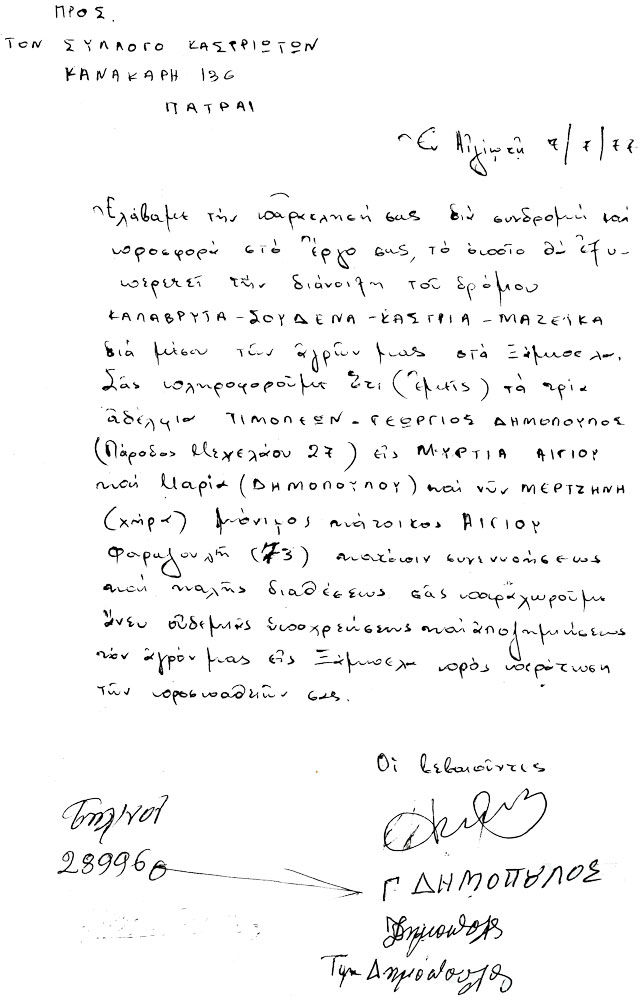 ΠΡΟΣ.
ΤΟΝ ΣΥΛΛΟΓΟ ΚΑΣΤΡΙΩΤΩΝ
ΚΑΝΑΚΑΡΗ 136
ΠΑΤΡΑΙ
Ἐν Αἰγίῳ τῇ 7/7/77
Ἐλάβαμε τήν παράκλησή σας διά συνδρομή καί
προσφορά στό ἔργο σας, τό ὁποῖο θά ἐξυ-
πηρετεῖ τήν διάνοιξη τοῦ δρόμου
ΚΑΛΑΒΡΥΤΑ - ΣΟΥΔΕΝΑ - ΚΑΣΤΡΙΑ - ΜΑΖΕΪΚΑ
διά μέσου τῶν ἀγρῶν μας στά Ξάμπελα.
Σᾶς πληροφοροῦμε ὅτι (ἐμεῖς) τά τρία
ἀδέλφια ΤΙΜΟΛΕΩΝ - ΓΕΩΡΓΙΟΣ ΔΗΜΟΠΟΥΛΟΣ
(Πάροδος Μενελάου 27) εἰς ΜΥΡΤΙΑ ΑΙΓΙΟΥ
καί Μαρία (ΔΗΜΟΠΟΥΛΟΥ) καί νῦν ΜΕΡΤΖΗΝΗ
(χήρα) μόνιμος κάτοικος ΑΙΓΙΟΥ
(73) κατόπιν συνεννοήσεως
καί καλῆς διαθέσεως σᾶς παραχωροῦμε
ἄνευ οὐδεμιᾶς ὑποχρεώσεως καί ἀποζημιώσεως
τόν ἀγρόν μας εἰς Ξάμπελα πρός περάτωση
τῶν προσπαθειῶν σας.
Οἱ βεβαιοῦντες
Τηλ/νον
289960
Γ ΔΗΜΟΠΟΥΛΟΣ
Τιμ Δημόπουλος